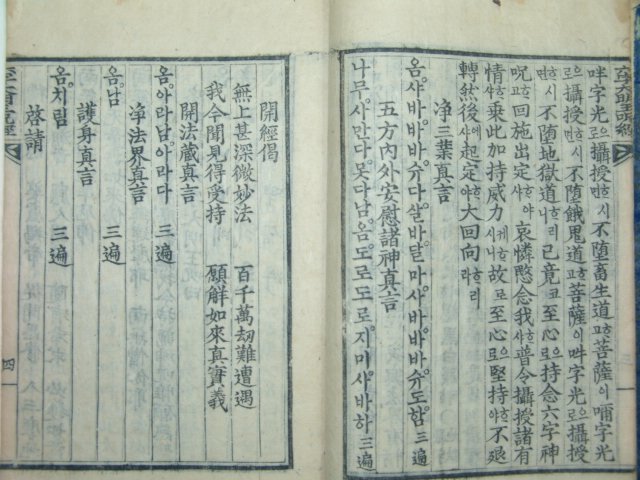 吽字光으로攝授하시면不墮畜生道하고菩薩이㗳字光
으로攝授하시면不墮餓鬼道하고菩薩이吽字光으로攝授
하시면不墮地獄道하리니己竟고至心으로持念六字神
呪하고回施出定하야사哀憐愍念我하사普令攝授諸有
情하사乘此加持威力케하시니故로至心으로堅持하야不退
轉然後에사起定하야大回向하리라
净三業真言
옴 사바바바 슈다 살바 달마 사바바바 슈도함 三遍
五方內外安慰諸神真言
나무 사만다 못다남 옴 도로도로 지미 사바하 三遍
開經偈
無上甚深微妙法 百千萬劫難遭遇
我今聞見得受持 願解如來真實義
開法藏真言
옴 아라남 아라다 三遍
净法界真言
옴 남 三遍
護身真言
옴 치림 三遍
啓請
四